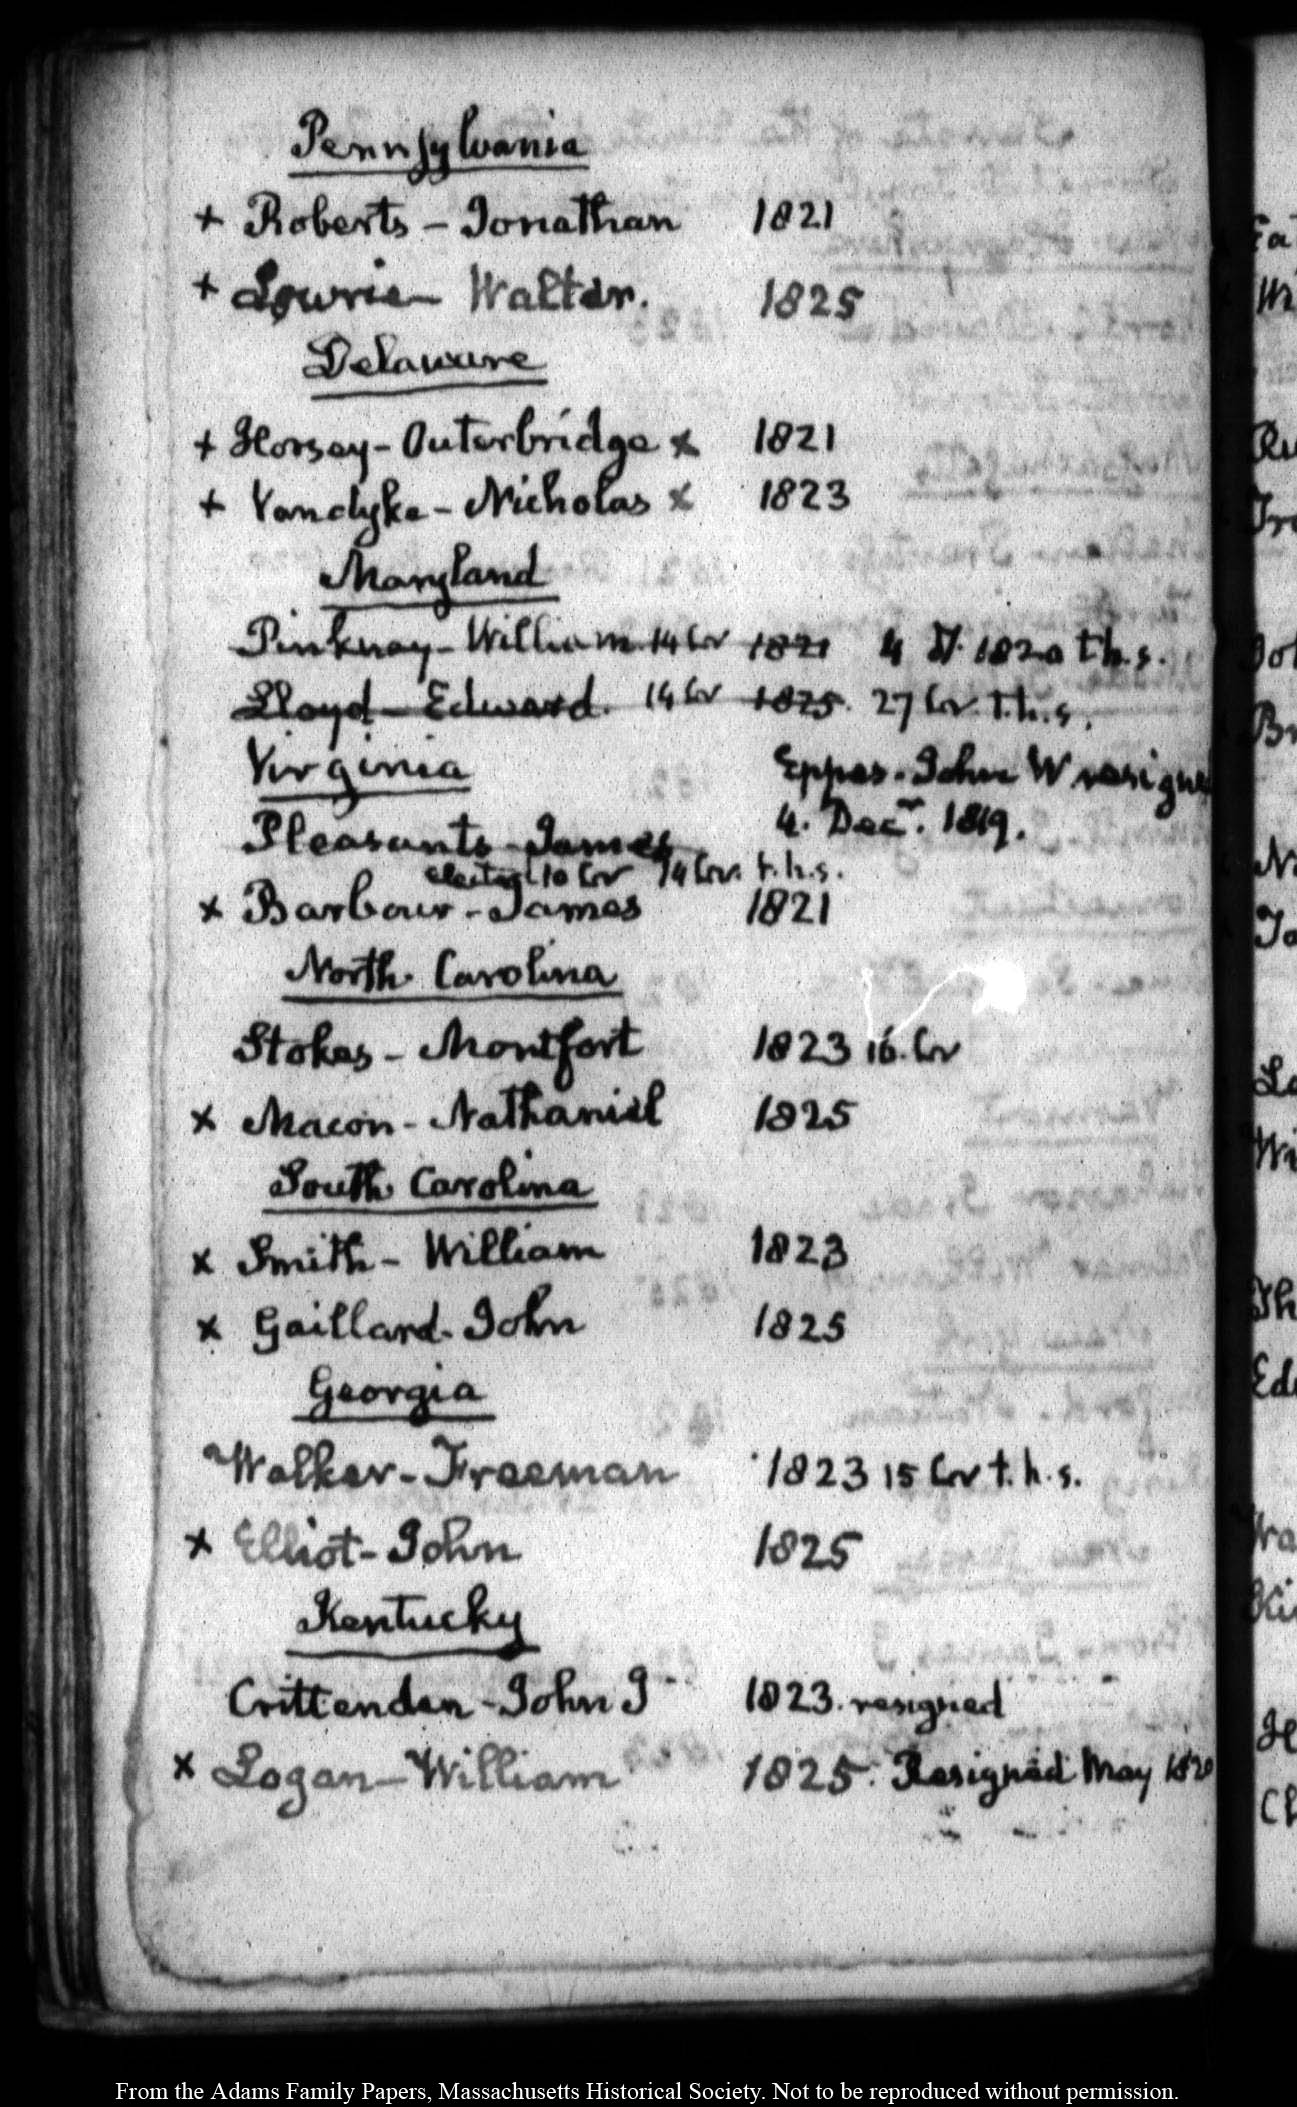 Pennsylvania
+ Roberts - Jonathan 1821
+ Lowrie - Walter. 1825
Delaware
+ Horsey - Outerbridge x 1821
+ Vandyke - Nicholas x 1823
Maryland
Pinkney - William 14 Cor 1821 4 1820 t.h.s.
Lloyd - Edward. 14 Cor 1825. 27 Cor. t.h.s.
Virginia
Eppes - John W resigne
4. Decr. 1819.
Pleasants - James
elected 10 Cor 14 Cor. t.h.s.
x Barbour - James 1821
North Carolina
Stokes - Montfort 1823 16. Cor
x Macon - Nathaniel 1825
South Carolina
x Smith - William 1823
x Gaillard - John 1825
Georgia
Walker - Freeman 1823 15 Cor t.h.s.
x Elliot - John 1825
Kentucky
Crittenden - John J 1823. resigned
x Logan - William 1825. Resigned May 1820
From the Adams Family Papers, Massachusetts Historical Society. Not to be reproduced without permission.